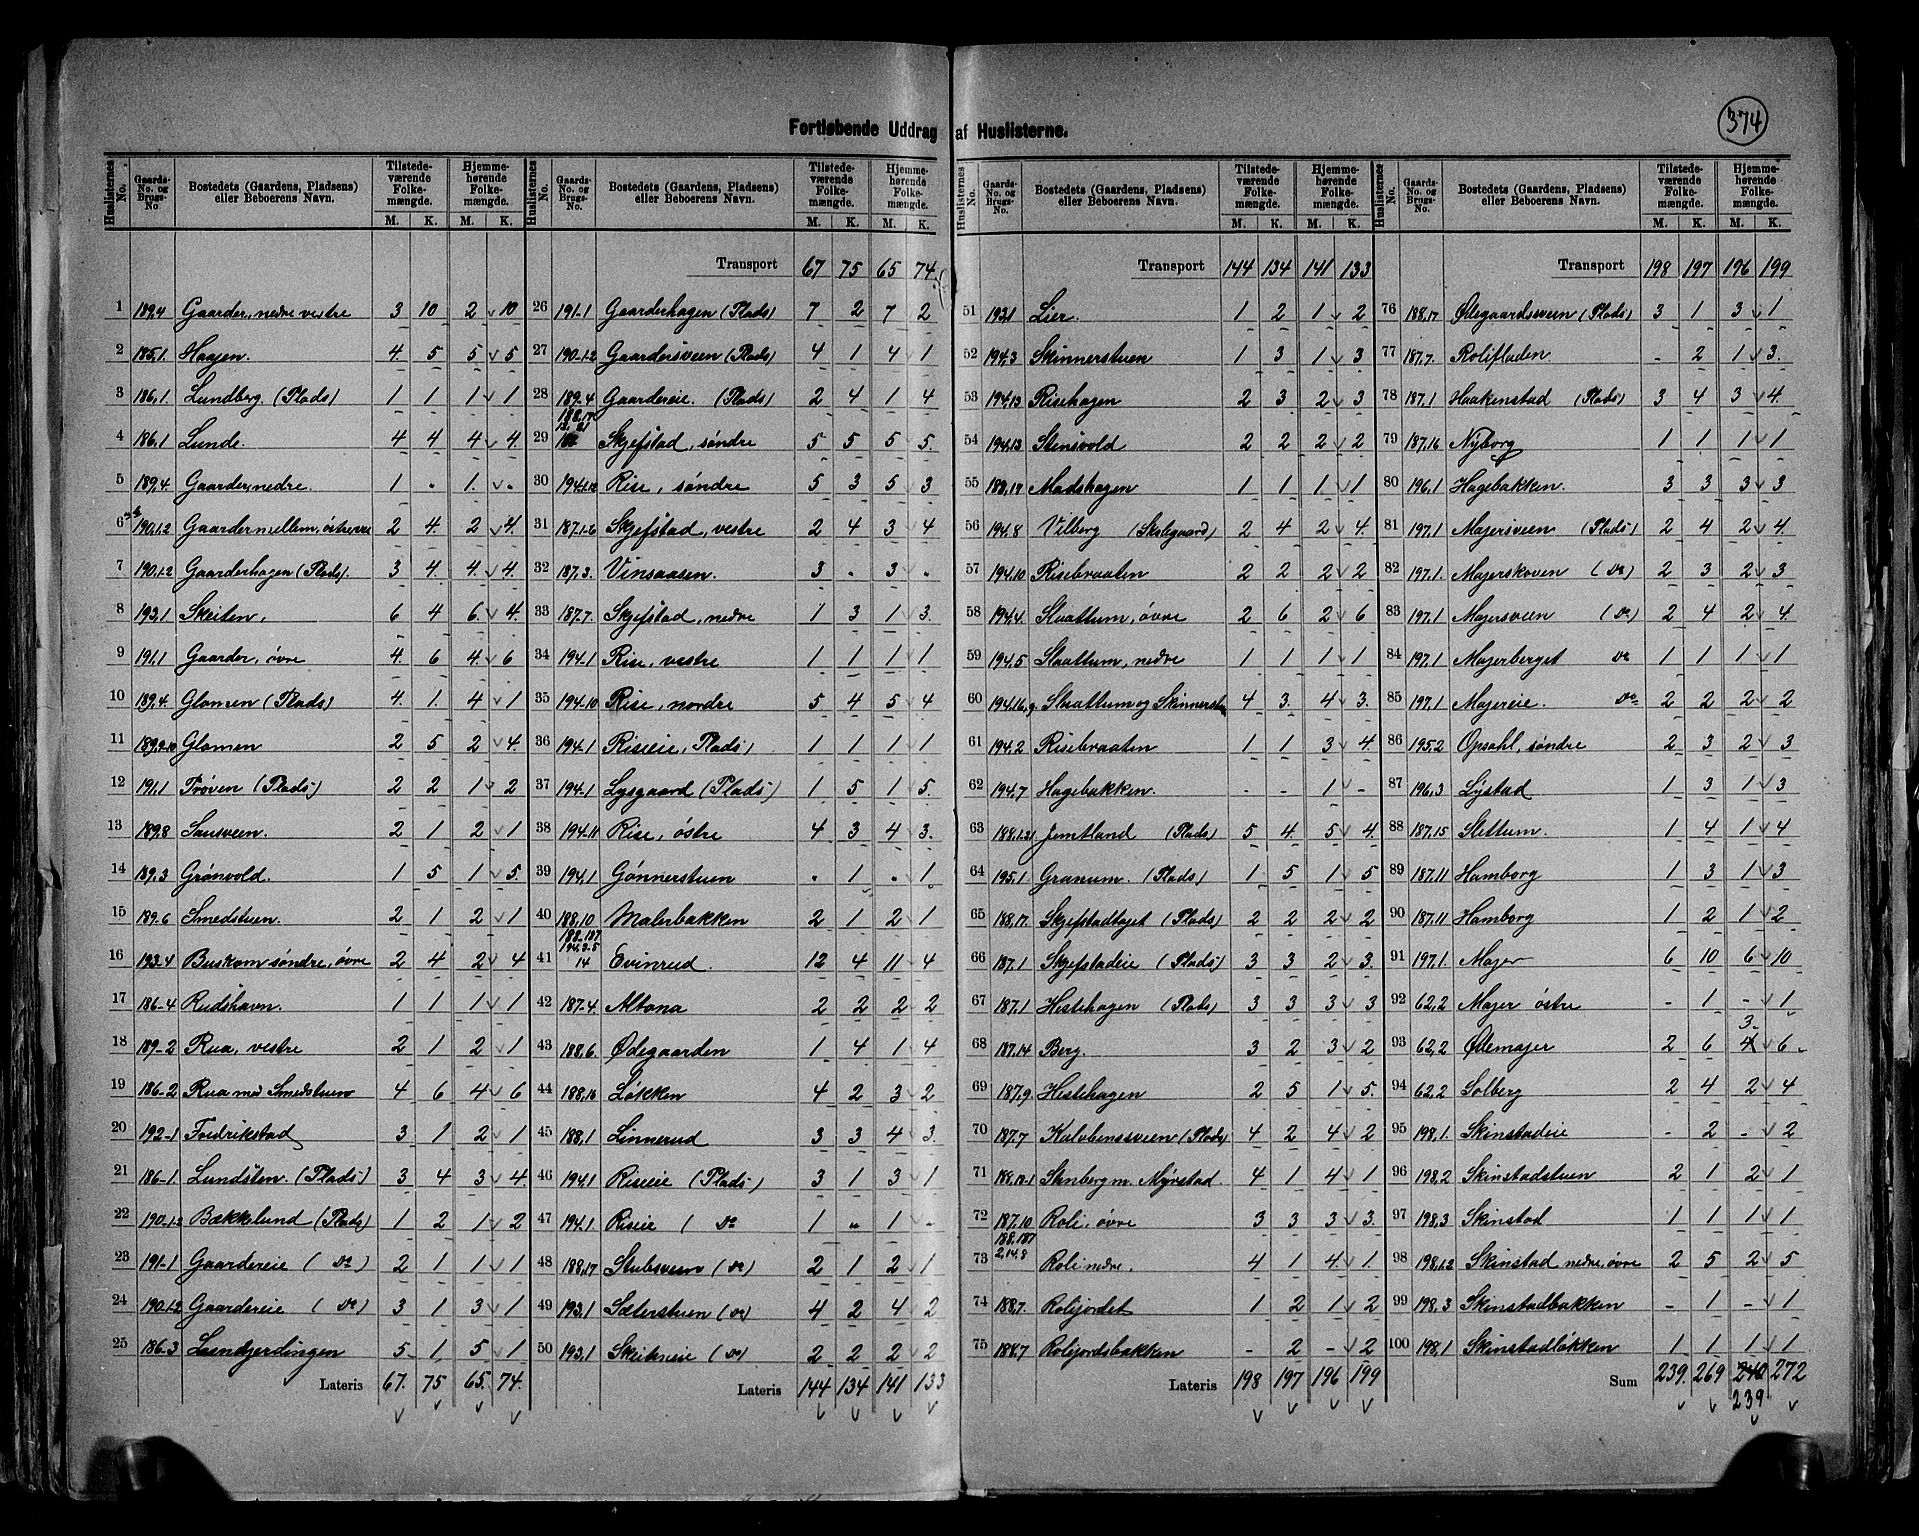 374
Fortløbende Uddrag af Huslisterne.
Huslisternes No. | Gaards-No. og Brugs-No. | Bostedets (Gaardens, Pladsens) eller Beboerens Navn. | Tilstedeværende Folkemængde. M. K. | Hjemmehørende Folkemængde. M. K.
1 189,4 Gaarder, nedre vestre 3 10 2 10
2 185,1. Haajen. 4 5 5 5
3 186,1. Lundberg (Plads) 1 1 1 1
4 186,1 Lunde. 4 4 4 4.
5 189,4. Gaarder, nedre. 1 . 1. .
6 190,1.2 Gaarder mellem, østre 2 4. 2 4.
7 190,1.2 Gaarderhagen (Plads). 3 4. 4. 4.
8 193,1 Skeiten. 6 4 6. 4.
9 191,1 Gaarder, øvre 4. 6 4. 6
10 189,4. Glomen (Plads) 4. 1. 4 1
11 189,9-10 Glomen 2 5 2 4.
12 191,1 Trøven (Plads) 2 2 1 2
13 189,8 Sansveen. 2 1 2 1
14 189,3 Grønvold. 1 5 1 5.
15 189,6 Smedstuen. 2 1 2 1
16 193,4 Buskom søndre, øvre 2 4 2 4
17 186-4 Rudshavn. 1 1 1 1
18 189-2 Rua, vestre 2 1 2 1
19 186-2 Rua med Smedstuen 4 6 4 6
20 192-1 Fredrikstad 3 1 2 1
21 186-1. Lundsten. (Plads) 3 4 3 4
22 190-1.2 Bækkelund (Plads) 1 2 1 2
23 191-1 Gaardereie (Do) 2 1 1 1
24 190-1.2 Gaardereie (Do) 3 1 3 1
25 186-3 Lundgjerdingen 5 1 5 1
Lateris 67. 75 65. 74.
Huslisternes No. | Gaards-No. og Brugs-No. | Bostedets (Gaardens, Pladsens) eller Beboerens Navn. | Tilstedeværende Folkemængde. M. K. | Hjemmehørende Folkemængde. M. K.
Transport 67 75 65 74.
26 191-1 Gaarderhagen (Plads) 7 2 7 2
27 190-1.2 Gaardersveen (Plads) 4 1 4 1
28 189,4 Gaardereie. (Plads) 2 4 1 4
29 Skjefstad, søndre 5 5 5 5.
30 194,1.12 Rise, søndre 5 3 5 3
31 187-1-6 Skjefstad, vestre 2 4 3 4
32 187,3. Vinsaasen. 3 . 3 .
33 187-7. Skjefstad, nedre 1 3 1 3.
34 194-1 Rise, vestre 1 1 1 1
35 194-10 Rise, nordre 5 4 5 4
36 194-1 Riseeie, Plads) 1 1 1 1
37 194-1 Lysgaard (Plads) 1 5 1 5.
38 194-11 Rise, østre 4 3 4 3.
39 194,1 Gønnerstuen . 1 . 1
40 188,10 Malerbakken 2 1 2 1
41 188-187 194,3.5 14 Evinrud. 12 4 11 4
42 187-4. Altona 2 2 2 2
43 188,6. Ødegaarden 1 4 1 4
44 188,16 Løkken 4 2 3 2
45 188,1 Linnerud 3 3 4 3.
46 194,1 Riseeie (Plads) 3 1 3 1
47 194,1. Riseie (Do 1 „ 1 .
48 188,17 Stubsveen (Do) 2 1 2 1
49 193,1 Sæterstuen (Do) 4 2 4 2
50 193,1 Skeiteneie (Do) 2 2 2 2
Lateris 144 134 141 133
Huslisternes No. | Gaards-No. og Brugs-No. | Bostedets (Gaardens, Pladsens) eller Beboerens Navn. | Tilstedeværende Folkemængde. M. K. | Hjemmehørende Folkemængde. M. K.
Transport 144 134 141 133
51 192,1 Lier. 1 2 1 2
52 194,3 Skinnerstuen 1 3 1 3
53 194,13 Risehagen 2 3 2 3
54 194,13 Stensvold 2 2 2 2
55 188,17 Madshagen 1 1 1 1
56 194,8 Vilberg (Skolegaard) 2 4 2 4.
57 194,10 Risebraaten 2 2 2 2
58 194,4. Slaattum, øvre 2 6 2 6
59 194,5 Slaattum, nedre 1 1 1 1
60 194,16,9 Slaattum og Skinnerstu 4 3. 4 3.
61 194,2 Risebraaten 1 1 3 4.
62 194,7 Hagebakken. - - 1 -
63 188,1.21 Jemtland (Plads) 5 4. 5 4.
64 195,1 Granum. (Plads) 1 5 1 5
65 188,17. Skjefstadtoget (Plads) 2 2 2 2
66 187,1 Skjefstadeie (Plads) 3 3 2 3.
67 187,1 Hestehagen (Plads) 3 3 3 3
68 187,14 Berg. 3 2 3 2
69 187,9. Hestehagen 2 5 1 5.
70 187,7 Kalvbenssveen (Plads) 4 2 4 2
71 188,18-1 Stenberg m. Myrstad. 4 1 4 1
72 187,10 Roli, øvre 3 3 3 3.
73 188,187 2,14.8 Roli nedre. 4 1 4. 1.
74 188,7. Rolijordet 1 2 1 2
75 188,7 Rolijordsbakken - 2 - 2
Lateris 198 197 196 199
Huslisternes No. | Gaards-No. og Brugs-No. | Bostedets (Gaardens, Pladsens) eller Beboerens Navn. | Tilstedeværende Folkemængde. M. K. | Hjemmehørende Folkemængde. M. K.
Transport 198 197 196 199
76 188,17 Ødegaardsveen (Plads) 3 1 3 1
77 187,7. Rolifladen - 2 1 3.
78 187,1 Haakenstad (Plads) 3 4 3 4.
79 187,16 Nyborg 1 1 1 1
80 196,1 Hagebakken. 3 3 3 3
81 197,1 Majersveen (Plads) 2 4 2 4.
82 197,1. Majerskoven (Do) 2 3 2 3
83 197,1 Majersveen (Do) 2 4 2 4.
84 197,1 Majerberget Do 1 1 1 1
85 197,1 Majereie. Do 2 2 2 2
86 195,2 Opsahl, søndre 2 3 2 3
87 196,3 Lystad 1 3 1 3
88 187,15 Slettum. 1 4 1 4
89 187,11 Hamborg 1 3 1 3
90 187,11 Hamborg 1 2 1 2
91 197,1. Majer 6 10 6 10
92 62,2 Majer østre - 1 - 1
93 62,2 Ødemajer 2 6 4 3- 6-
94 62,2 Solberg 2 4 2 4
95 198,1. Skinstadeie - 2 - 2
96 198,2 Skinstadstuen 2 1 2 1
97 198,3 Skinstad 1 1 1 1
98 198,1.2 Skinstad nedre, øvre 2 5 2 5
99 198,3 Skinstadbakken - 1 - 1
100 198,1 Skinstadløkken 1 1 1 1
Sum 239. 269 240 272
239